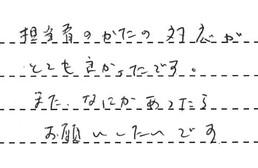 担当者のかたの対応が
とても良かったです。
また、なにかあったら
お願いしたいです